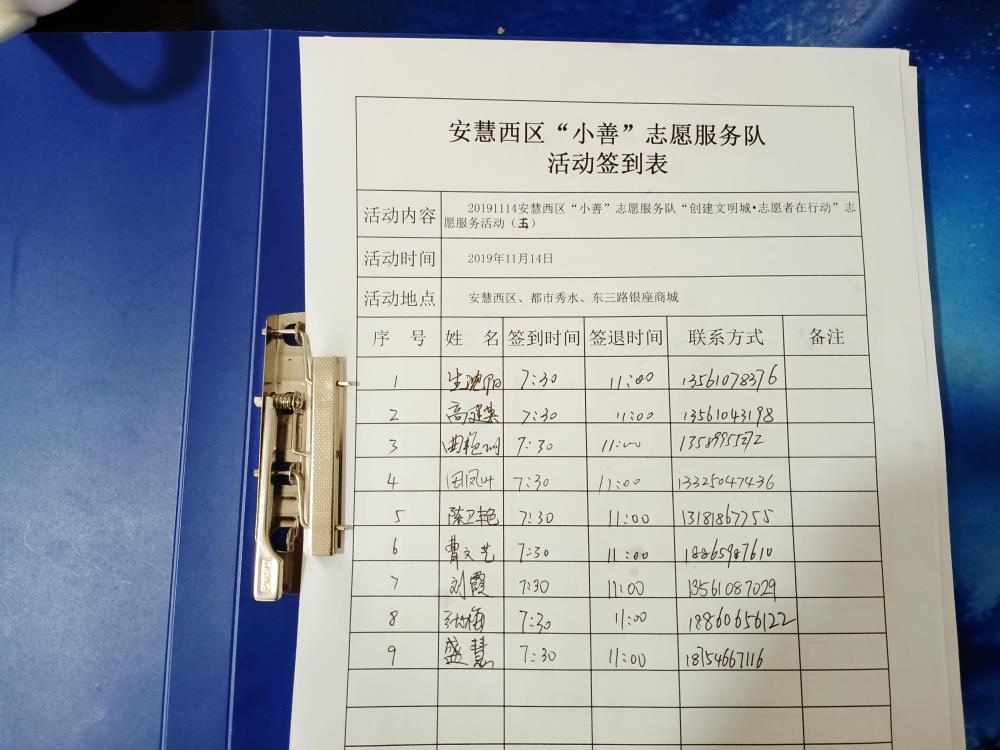 安慧西区“小善”志愿服务队
活动签到表
活动内容 20191114安慧西区“小善”志愿服务队“创建文明城•志愿者在行动”志
愿服务活动（五）
活动时间 2019年11月14日
活动地点 安慧西区、都市秀水、东三路银座商城
序 号 姓 名 签到时间 签退时间 联系方式 备注
1 7:30 11:00 13561078376
2 高建英 7:30 11:00 13561043198
3 曲艳明 7:30 11:00
4 田凤叶 7:30 11:00 13325047436
5 陈卫艳 7:30 11:00 13181867755
6 曹文艺 7:30 11:00 18865987610
7 刘霞 7:30 11:00 13561087029
8 张梅 7:30 11:00 18860656122
9 盛慧 7:30 11:00 18754667116